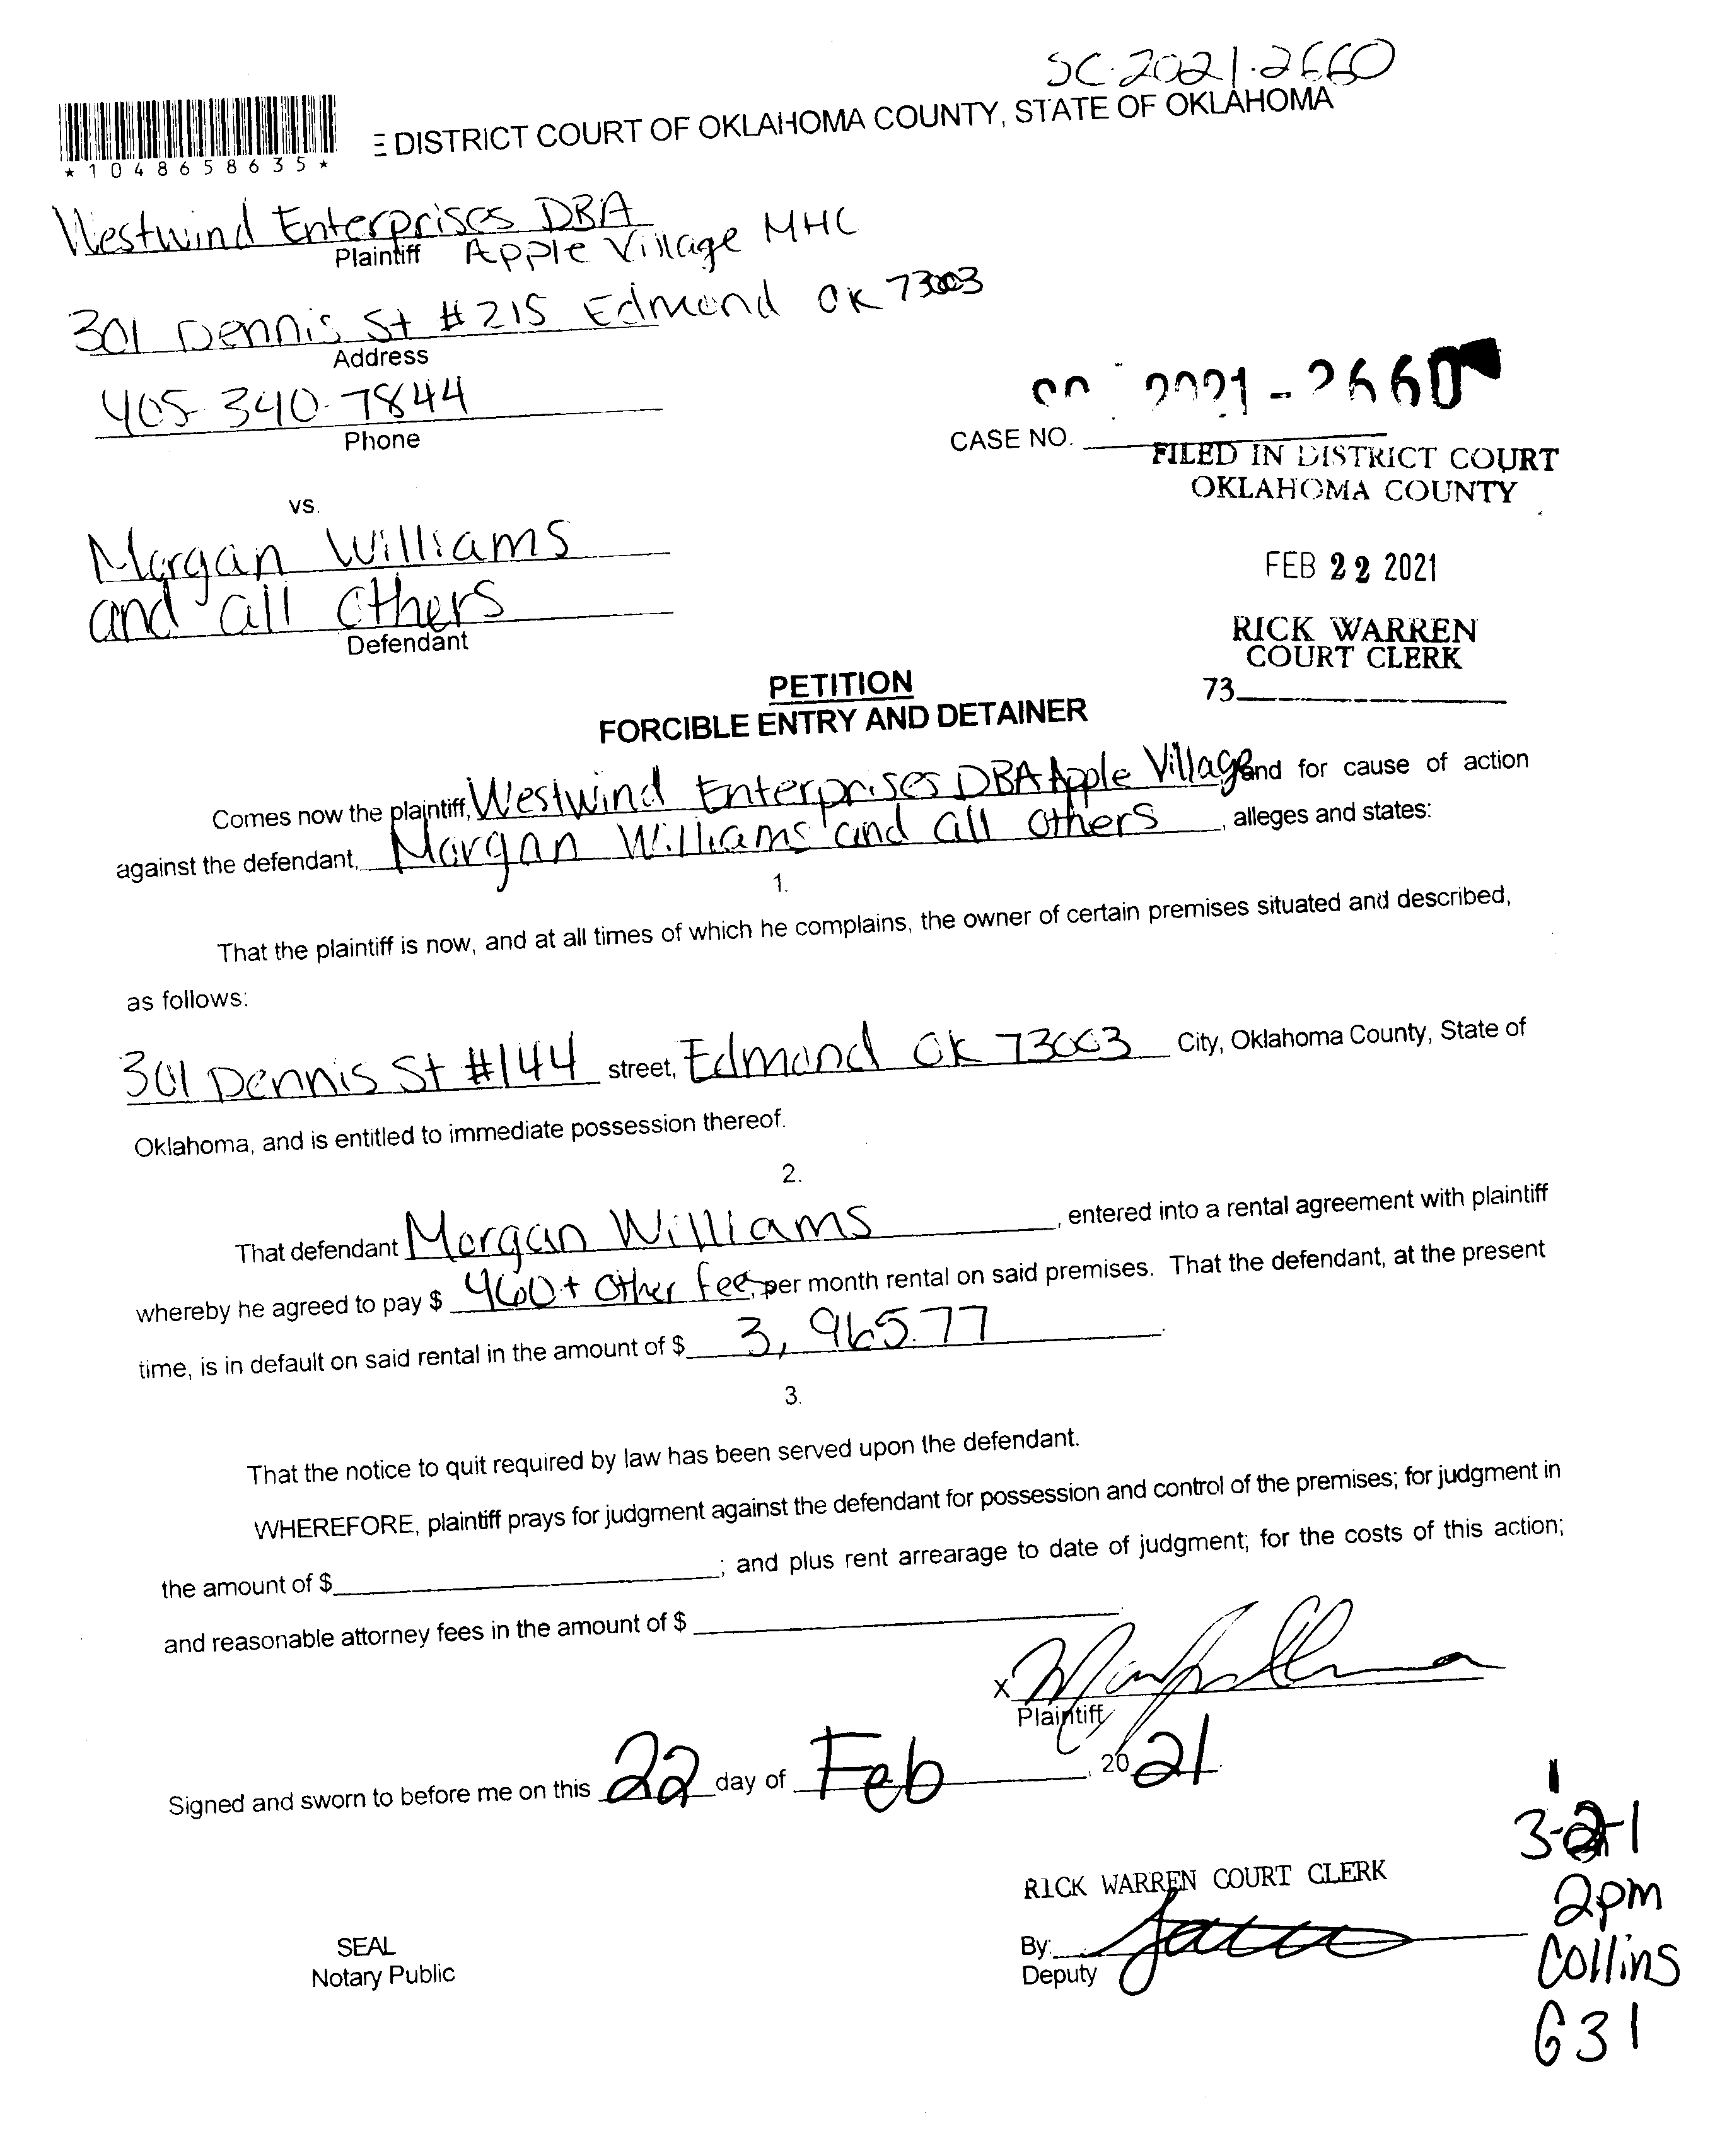 SC-2021-2660
*1048658635*
E DISTRICT COURT OF OKLAHOMA COUNTY, STATE OF OKLAHOMA
Westwind Enterprises DBA
Plaintiff Apple Village MHC
301 Dennis St #215 Edmond OK 73003
Address
405-340-7844
Phone
2021-2660
CASE NO.
FILED IN DISTRICT COURT
OKLAHOMA COUNTY
vs.
Morgan Williams
and all others
Defendant
FEB 22 2021
RICK WARREN
COURT CLERK
73
PETITION
FORCIBLE ENTRY AND DETAINER
Comes now the plaintiff, Westwind Enterprises DBA Apple Village and for cause of action
against the defendant, Morgan Williams and all others, alleges and states:
1.
That the plaintiff is now, and at all times of which he complains, the owner of certain premises situated and described,
as follows:
301 Dennis St #144 street, Edmond OK 73003 City, Oklahoma County, State of
Oklahoma, and is entitled to immediate possession thereof.
2.
That defendant Morgan Williams, entered into a rental agreement with plaintiff
whereby he agreed to pay $ 460 + other fees per month rental on said premises. That the defendant, at the present
time, is in default on said rental in the amount of $ 3,965.77.
3.
That the notice to quit required by law has been served upon the defendant.
WHEREFORE, plaintiff prays for judgment against the defendant for possession and control of the premises; for judgment in
the amount of $ ; and plus rent arrearage to date of judgment; for the costs of this action;
and reasonable attorney fees in the amount of $
X
Plaintiff
Signed and sworn to before me on this 22 day of Feb, 2021.
RICK WARREN COURT CLERK
By:
Deputy
SEAL
Notary Public
2pm
Collins
G31